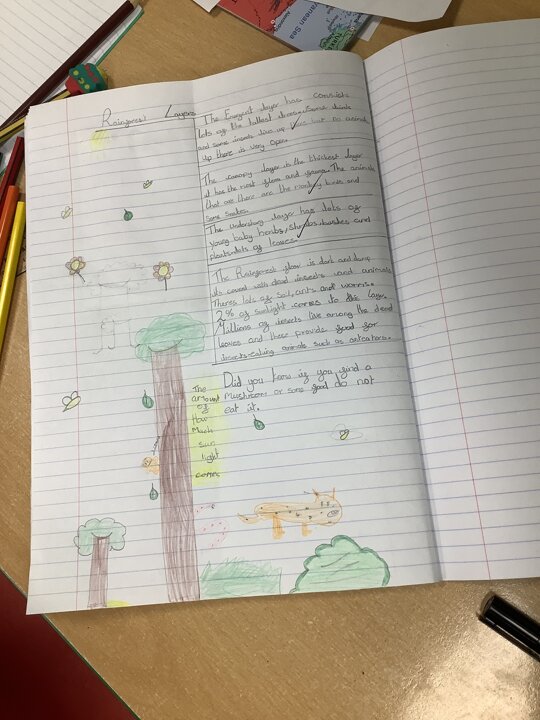 Rainforest Layers
The Emergent layer has consists
lots of the tallest trees. Some birds
and some insects live up here but no animals
up there is very open.
The canopy layer is the thickest layer
it has the most flora and fauna. The animals
that are there are the monkey birds and
some snakes.
The understory layer has lots of
young baby herbs, shrubs, bushes and
plants lots of leaves.
The Rainforest floor is dark and damp
its coverd with dead insects and animals
Theres lots of soil, ants and worms.
2% of sunlight comes to this layer.
Millions of insects live among the dead
leaves and these provide food for
insects-eating animals such as anteaters.
Did you know if you find a
mushroom or some food do not
eat it.
The
amount
of
How
Much
sun
light
comes
ranean Sea